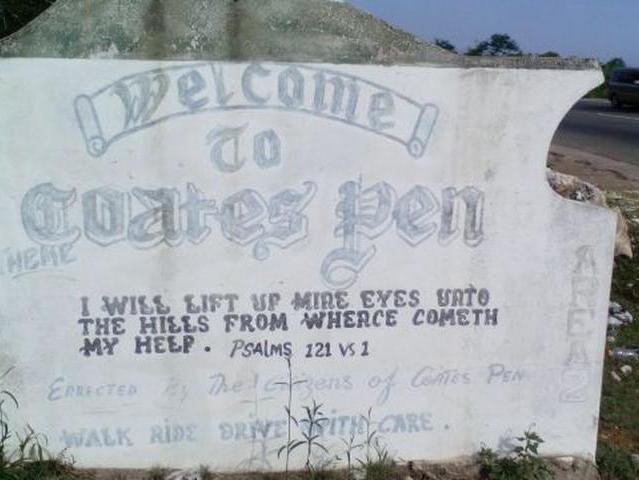 Welcome
To
Coates Pen
THEME
I WILL LIFT UP MINE EYES UNTO
THE HILLS FROM WHENCE COMETH
MY HELP. PSALMS 121 VS 1
ERRECTED By The Citizens of COATES PEN
WALK RIDE DRIVE WITH CARE.
AREA 2